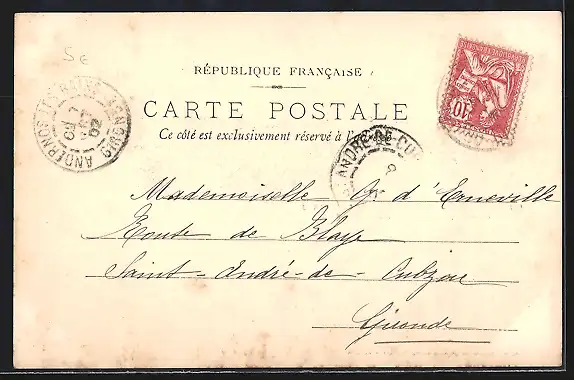 5e
RÉPUBLIQUE FRANÇAISE
CARTE POSTALE
Ce côté est exclusivement réservé à l'adresse
10
ANDERNOS-LES-BAINS GIRONDE
ANDRÉ-DE-CUB
Mademoiselle d'Erneville
Route de Blaye
Saint-André-de-Cubzac
Gironde